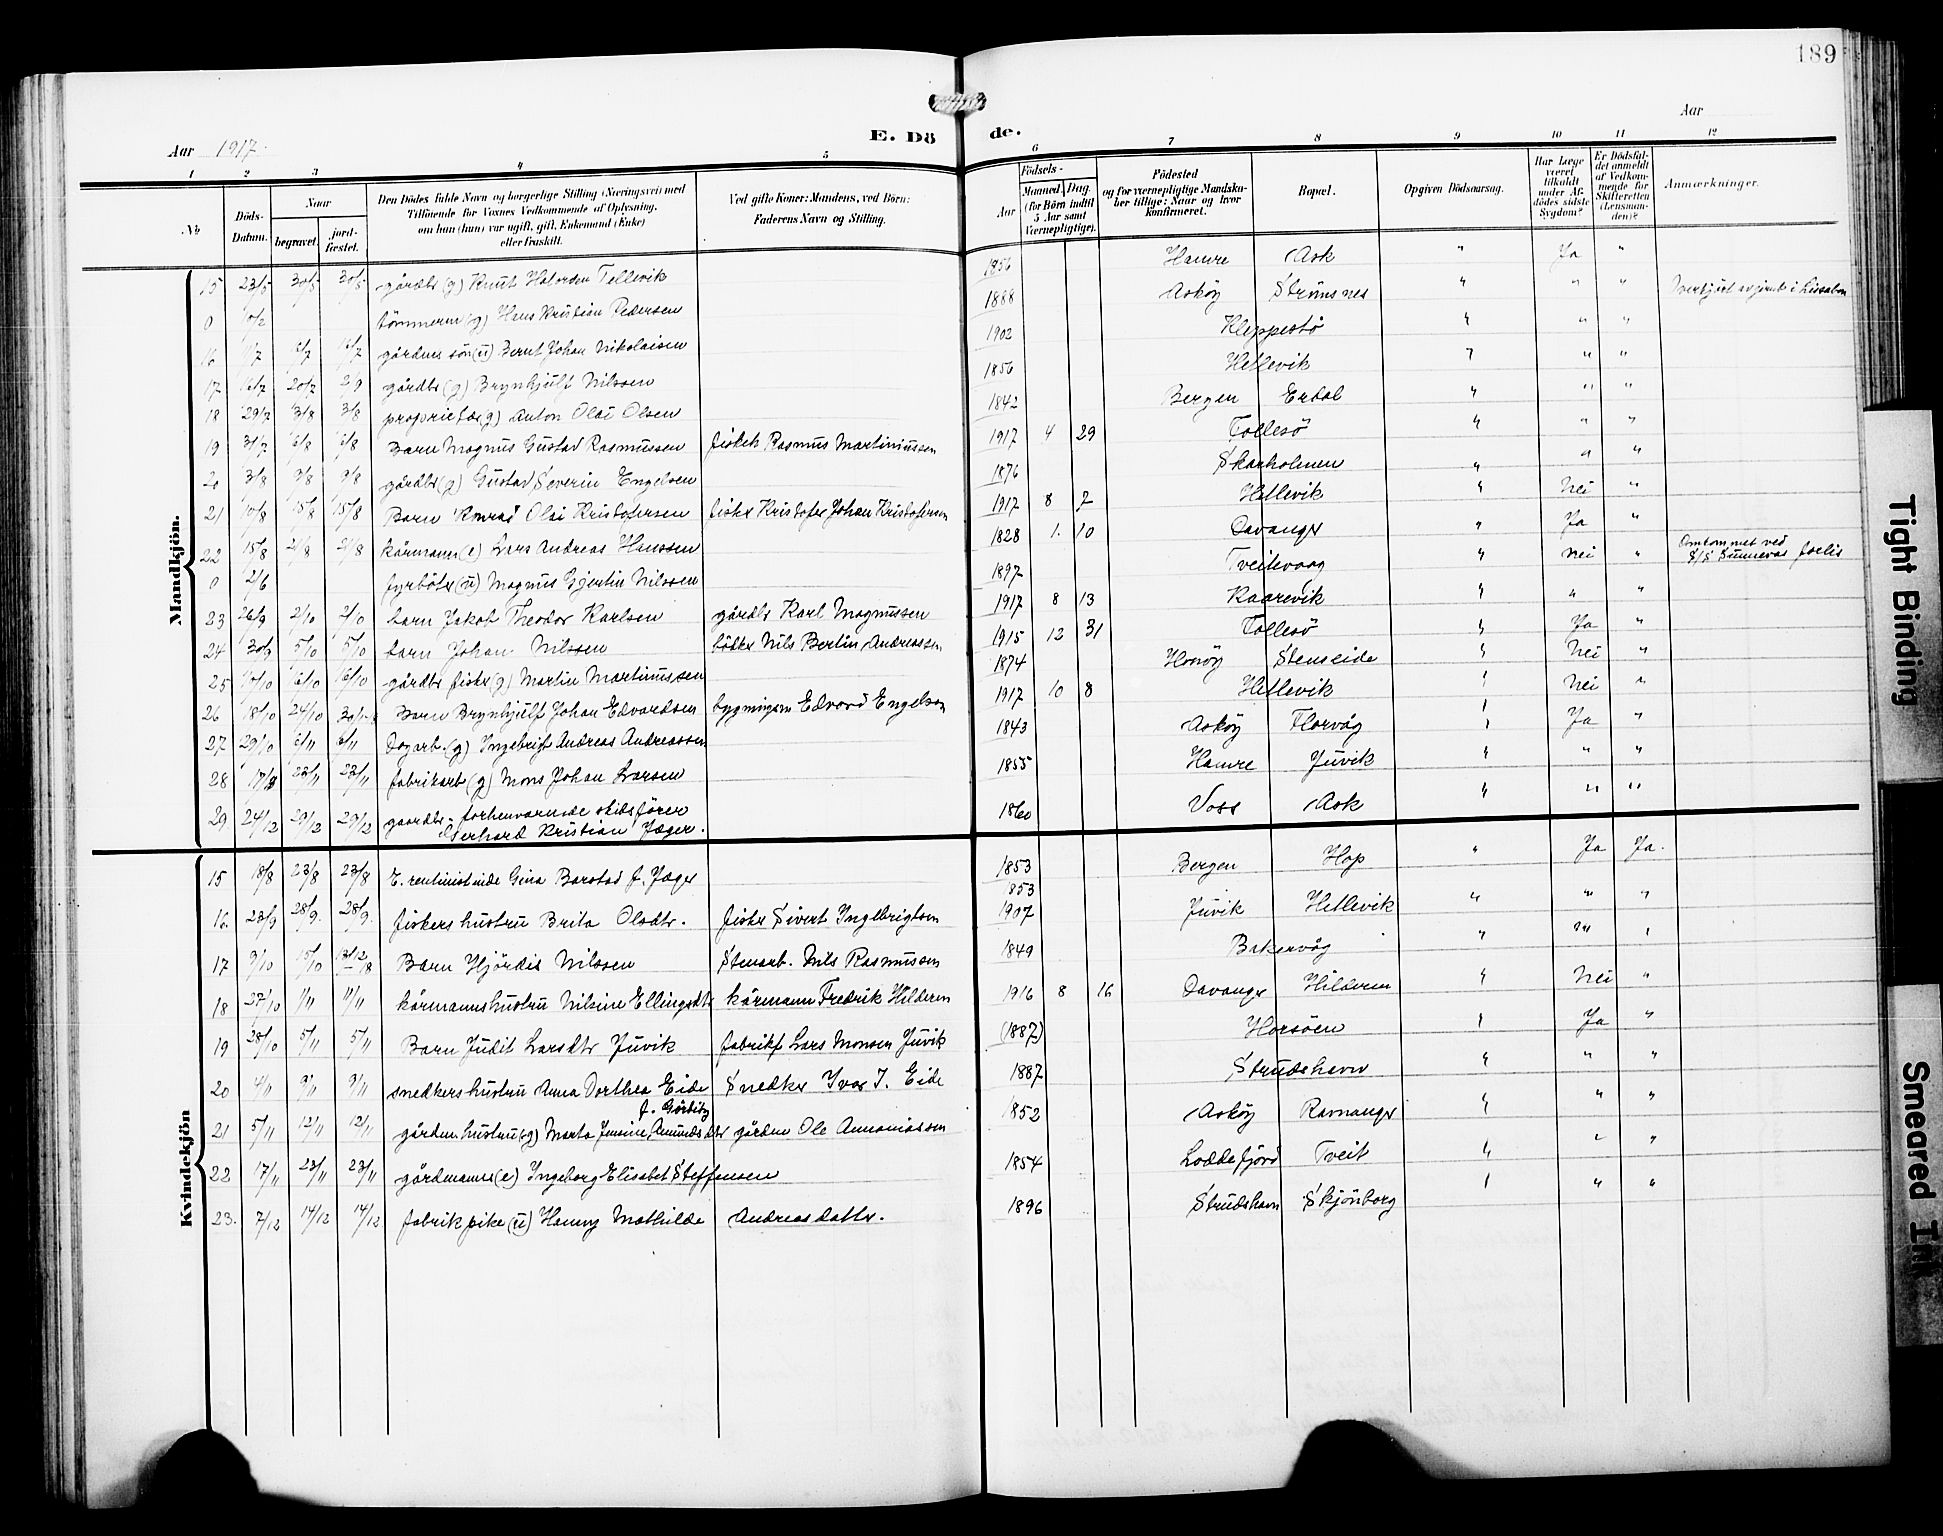 189
Aar 1917.
E. Dö de.
Aar
1 2 3 4 5 6 7 8 9 10 11 12
No
Döds-Datum.
Naar
begravet.
jord-fæstet.
Den Dödes fulde Navn og borgerlige Stilling (Næringsvei) med
Tilföiende for Voxnes Vedkommende af Oplysning,
om han (hun) var ugift, gift, Enkemand (Enke)
eller fraskilt.
Ved gifte Koner: Mandens, ved Börn:
Faderens Navn og Stilling.
Födsels-
Aar
Maaned. Dag.
(for Börn indtil
5 Aar samt
Værnepligtige).
Födested
og for værnepligtige Mandska-
ber tillige: Naar og hvor
konfirmeret.
Bopæl.
Opgiven Dödsaarsag.
Har Læge
været
tilkaldt
under Af-
dödes sidste
Sygdom?
Er Dödsfal-
det anmeldt
af Vedkom-
mende for
Skifteretten
(Lensman-
den)?
Anmærkninger.
Mandkjön.
15 23/5 30/5 30/5 gårdbr (g) Knut Halvorsen Tellevik 1856 Hamre Ask " Ja "
0 10/2 tömmerm (g) Hans Kristian Pedersen 1888 Asköy Strömsnes " " "
16 1/7 6/7 6/7 gårdm. sön (u) Bernt Johan Nikolaisen 1902 Kleppestö " " "
17 16/7 20/7 2/9 gårdbr (g) Brynhjulf Nilssen 1856 Hetlevik " " "
18 29/7 3/8 3/8 proprietær (g) Anton Olai Olsen 1842 Bergen Erdal " " "
19 31/7 6/8 6/8 Barn Magnus Gustav Rasmussen fisker Rasmus Martinussen 1917 4 29 Follesö " " "
20 3/8 9/8 9/8 gårdbr (g) Gustav Severin Engelsen 1876 Skarholmen " " "
21 10/8 15/8 15/8 Barn Konrad Olai Kristofersen fisker Kristofer Johan Kristofersen 1917 8 7 Hetlevik " Nei "
22 15/8 21/8 21/8 kårmann (e) Lars Andreas Hanssen 1828 1. 10 Davanger " Ja "
0 2/6 fyrböter (u) Magnus Gjertin Nilssen 1897 Tveitevaag " nei " Omkommet ved S/S Sunnevas forlis
23 26/9 2/10 2/10 barn Jakob Theodor Karlsen gårdbr Karl Magnussen 1917 8 13 Kaarevik " " "
24 30/9 5/10 5/10 barn Johan Nilssen bödker Nils Bertin Andreassen 1915 12 31 Follesö " Ja "
25 10/10 16/10 16/10 gårdbr fisker (g) Martin Martinussen 1874 Stenseide " Nei "
26 18/10 24/10 Barn Brynhjulf Johan Edvardsen bygningsm Edvard Engelsen 1917 10 8 Hetlevik " Nei "
27 29/10 6/11 6/11 Dagarb. (g) Ingebrigt Andreas Andreassen 1843 Asköy Florvåg " Ja "
28 23/11 23/11 fabrikarb (g) Mons Johan Larsen 1855 Hamre Juvik " " "
29 24/12 29/12 29/12 gaardbr. forhenværende skibsförer
Gerhard Kristian Jæger. 1860 Voss Ask " " "
Kvindekjön
15 18/8 23/8 23/8 E. rentenistinde Gina Barstad f. Jæger 1853 Bergen Hop " Ja Ja.
16. 23/9 28/9. 28/9. fiskers hustru Brita Olsdtr. fisker Sivert Ingebrigtsen 1853 Juvik Hetlevik " " "
17 9/10 15/10 Barn Hjördis Nilssen Stenarb. Nils Rasmussen 1907 Bakervåg " " "
18 27/10 1/11 1/11 kårmanns hustru Nilsine Ellingsdtr kårmann Fredrik Hilderen 1849 Davanger Hilderen " Nei "
19 28/10 5/11 5/11 Barn Judit Larsdtr Juvik fabrikf Lars Monsen Juvik 1916 8 16 Horsöen " Ja "
20 4/11 9/11 9/11 snedkers hustru Anna Dorthea Eide Snedker Ivar J. Eide (1887) 1887 Strudshavn " " "
21 5/11 12/11 12/11 gårdm. hustru (g) Marta Jensine Amundsdtr gårdm Ole Annaniassen 1852 Asköy Ramanger " " "
22 17/11 23/11 23/11 gårdmanns (e) Ingeborg Elisabet Steffensen 1854 Loddefjord Tveit " " "
23. 7/12 14/12 14/12 fabrikpike (u) Hanny Mathilde Andreasdatter. 1896 Strudshavn Skjönborg " " "
Tight Binding
Smeared Ink